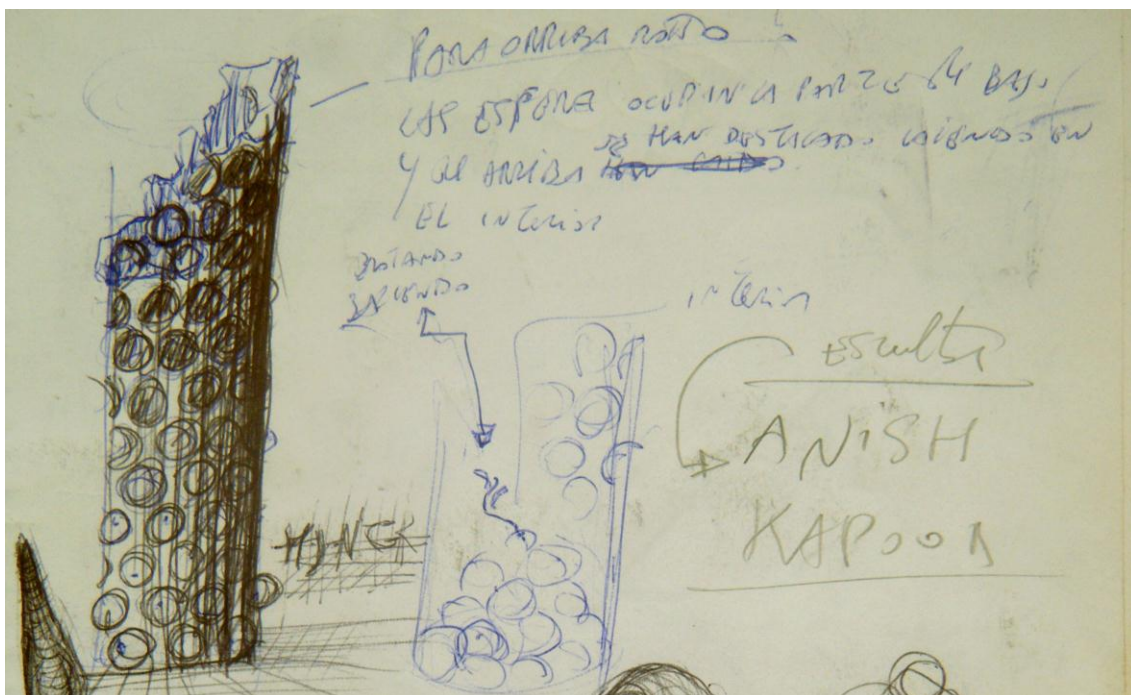 PARA ARRIBA ROTO
LAS ESFERA OCUPAN LA PARTE DE BAJO
Y DE ARRIBA SE HAN DESTACADO CAIENDO EN
EL INTERIOR
ESTANDO
SALIENDO
INTERIOR
ESCULTOR
ANISH
KAPOOR